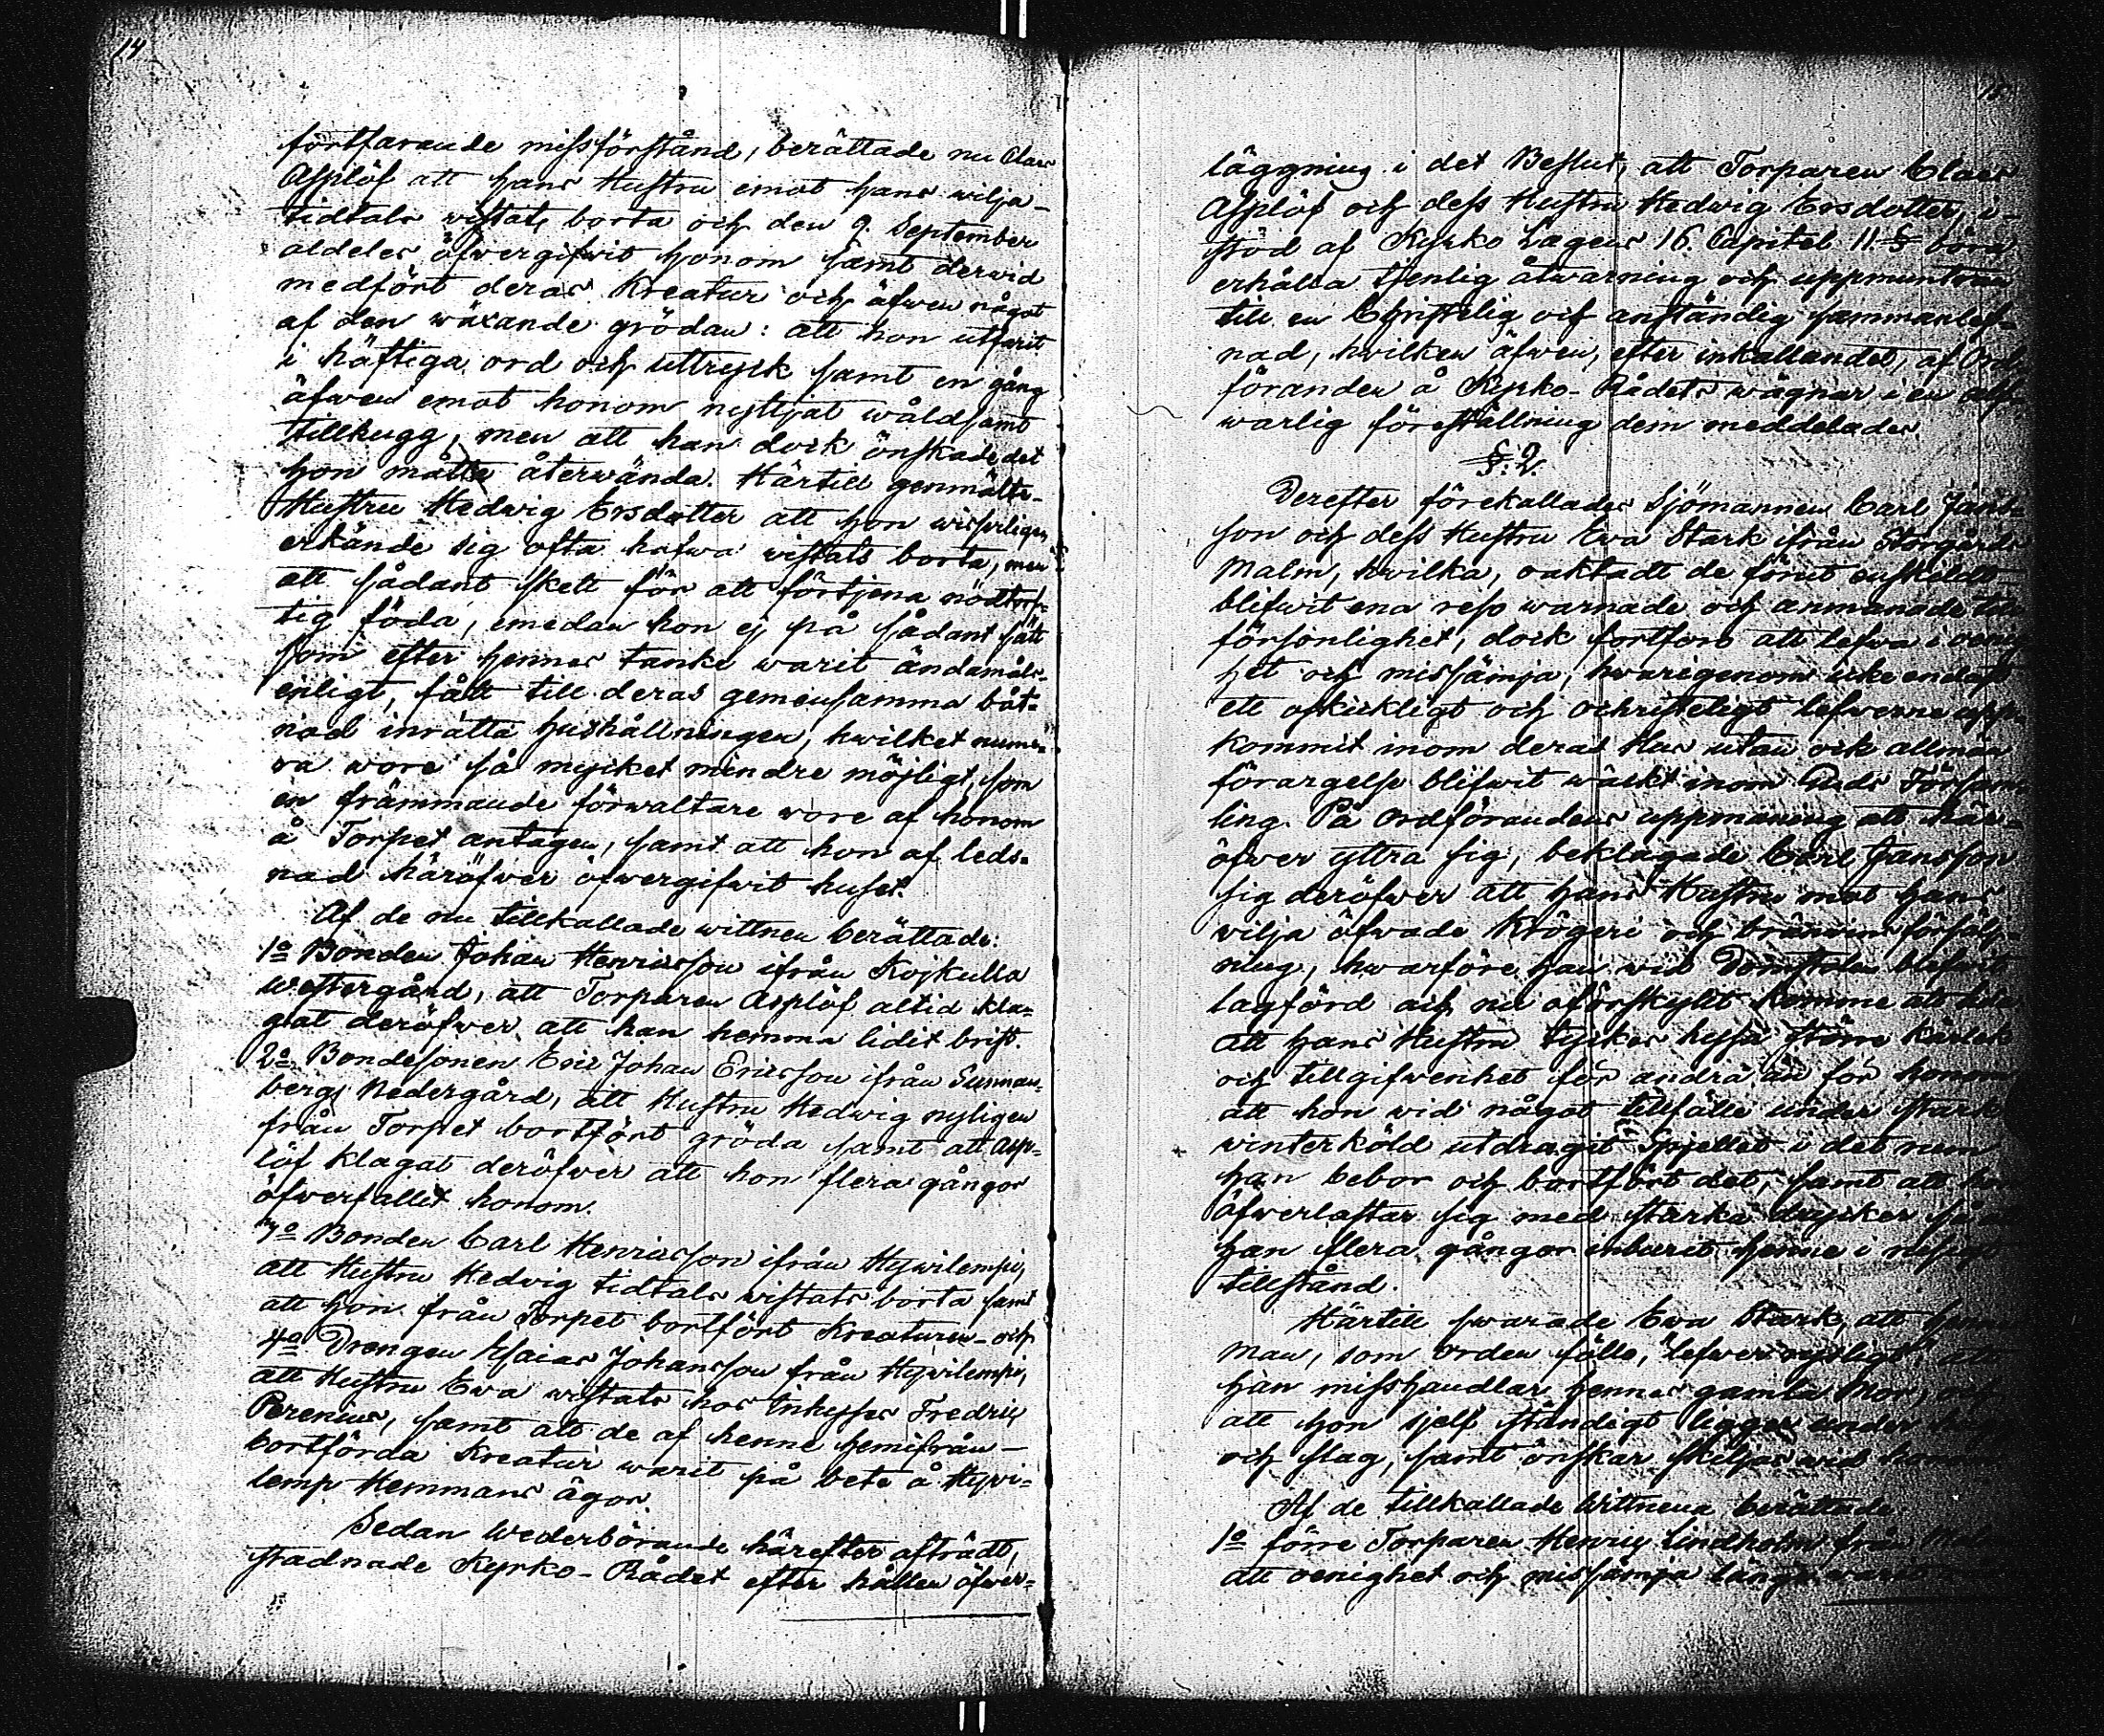 14
fortfarande missförstånd, berättade nu Claes
Asplöf att hans Hustru emot hans wilja
tidtals wistats borta och den 9. September
aldeles öfwergifwit honom samt derwid
medfört deras Kreatur och äfwen något
af den wäxande grödan: att hon utfarit
i häftiga ord och uttryck samt en gång
äfwen emot honom nyttjat wåldsamt
tillhugg, men att han dock önskade det
hon måtte återwända. Härtill genmälte
Hustru Hedwig Ersdotter att hon wisserligen
erkände sig ofta hafwa wistats borta, men
att sådant skett för att förtjena nödtorf-
tig föda, emedan hon ej på sådant sätt
som efter hennes tanke warit ändamåls-
enligt, fått till deras gemensamma båt-
nad inrätta hushållningen, hwilket nume-
ra wore så mycket mindre möjligt, som
en främmande förwaltare wore af honom
å Torpet antagen, samt att hon af leds-
nad häröfwer öfwergifwit huset.
Af de nu tillkallade wittnen berättade:
1o Bonden Johan Henricsson ifrån Kojkulla
Westergård, att Torparen Asplöf altid kla-
gat deröfwer att han hemma lidit brist.
2o Bondesonen Eric Johan Ericsson ifrån Sunnan-
bergs Nedergård, att Hustru Hedwig nyligen
från Torpet bortfört gröda samt att Asp-
löf klagat deröfwer att hon flera gångor
öfwerfallit honom.
3o Bonden Carl Henricsson ifrån Hywilempi,
att Hustru Hedvig tidtals wistats borta samt
att hon från Torpet bortfört Kreaturen och
4o Drengen Esaias Johansson från Hywilempi,
att Hustru Ewa wistats hos Inhyses Fredric
Perenius, samt att de af henne hemifrån
bortförda Kreatur warit på bete å Hywi-
lemp Hemmans ägor.
Sedan Wederbörande härefter afträdt,
stadnade Kyrko-Rådet efter hållen öfwer-
15
läggning i det Beslut, att Torparen Claes
Asplöf och dess Hustru Hedwig Ersdotter, i
stöd af Kyrko Lagens 16. Capitel 11. § böra
erhålla tjenlig åtwarning och uppmuntran
till en Christelig och anständig sammanlef-
nad, hwilken äfwen, efter inkallandet, af Ord-
föranden å Kyrko-Rådets wägnar i en alf-
warlig föreställning dem meddelades.
§. 2.
Derefter förekallades Sjömannen Carl Jans-
son och dess Hustru Ewa Stark ifrån Storgårds
Malm, hwilka, oaktadt de förut enskildt
blifwit ena reso warnade och anmanade till
försonlighet, dock fortforo att lefwa i oenig-
het och missämja, hwarigenom icke endast
ett oskickligt och ochristeligt lefwerne upp-
kommit inom deras Hus utan ock allmän
förargelse blifwit wäckt inom Församl-
ling. På Ordförandens uppmaning att här-
öfwer yttra sig, beklagade Carl Jansson
sig deröfwer att hans Hustru mot hans
wilja öfwade Krögeri och bränwins försälj-
ning, hwarföre han wid Domstolen blifwit
lagförd och nu oförskylt komme att lida
att hans Hustru tyckes hysa större kärlek
och tillgifwenhet för andra än för honom
att hon wid något tillfälle under stark
winterköld utdragit Spjellet i det rum
han bebor och bortfört det, samt att hon
öfwerlastar sig med starka drycker så att
han flera gångor inburit henne i
tillstånd.
Härtill swarade Ewa Stark, att hennes
Man, som orden fölle, "lefwer " att
han misshandlar hennes gamla Mor, och
att hon sjelf ständigt ligger under hugg
och slag, samt önskar skiljas wid honom.
Af de tillkallade Wittnena berättade
1o förre Torparen Henric Lindholm från Malm
att oenighet och missämja länge warit